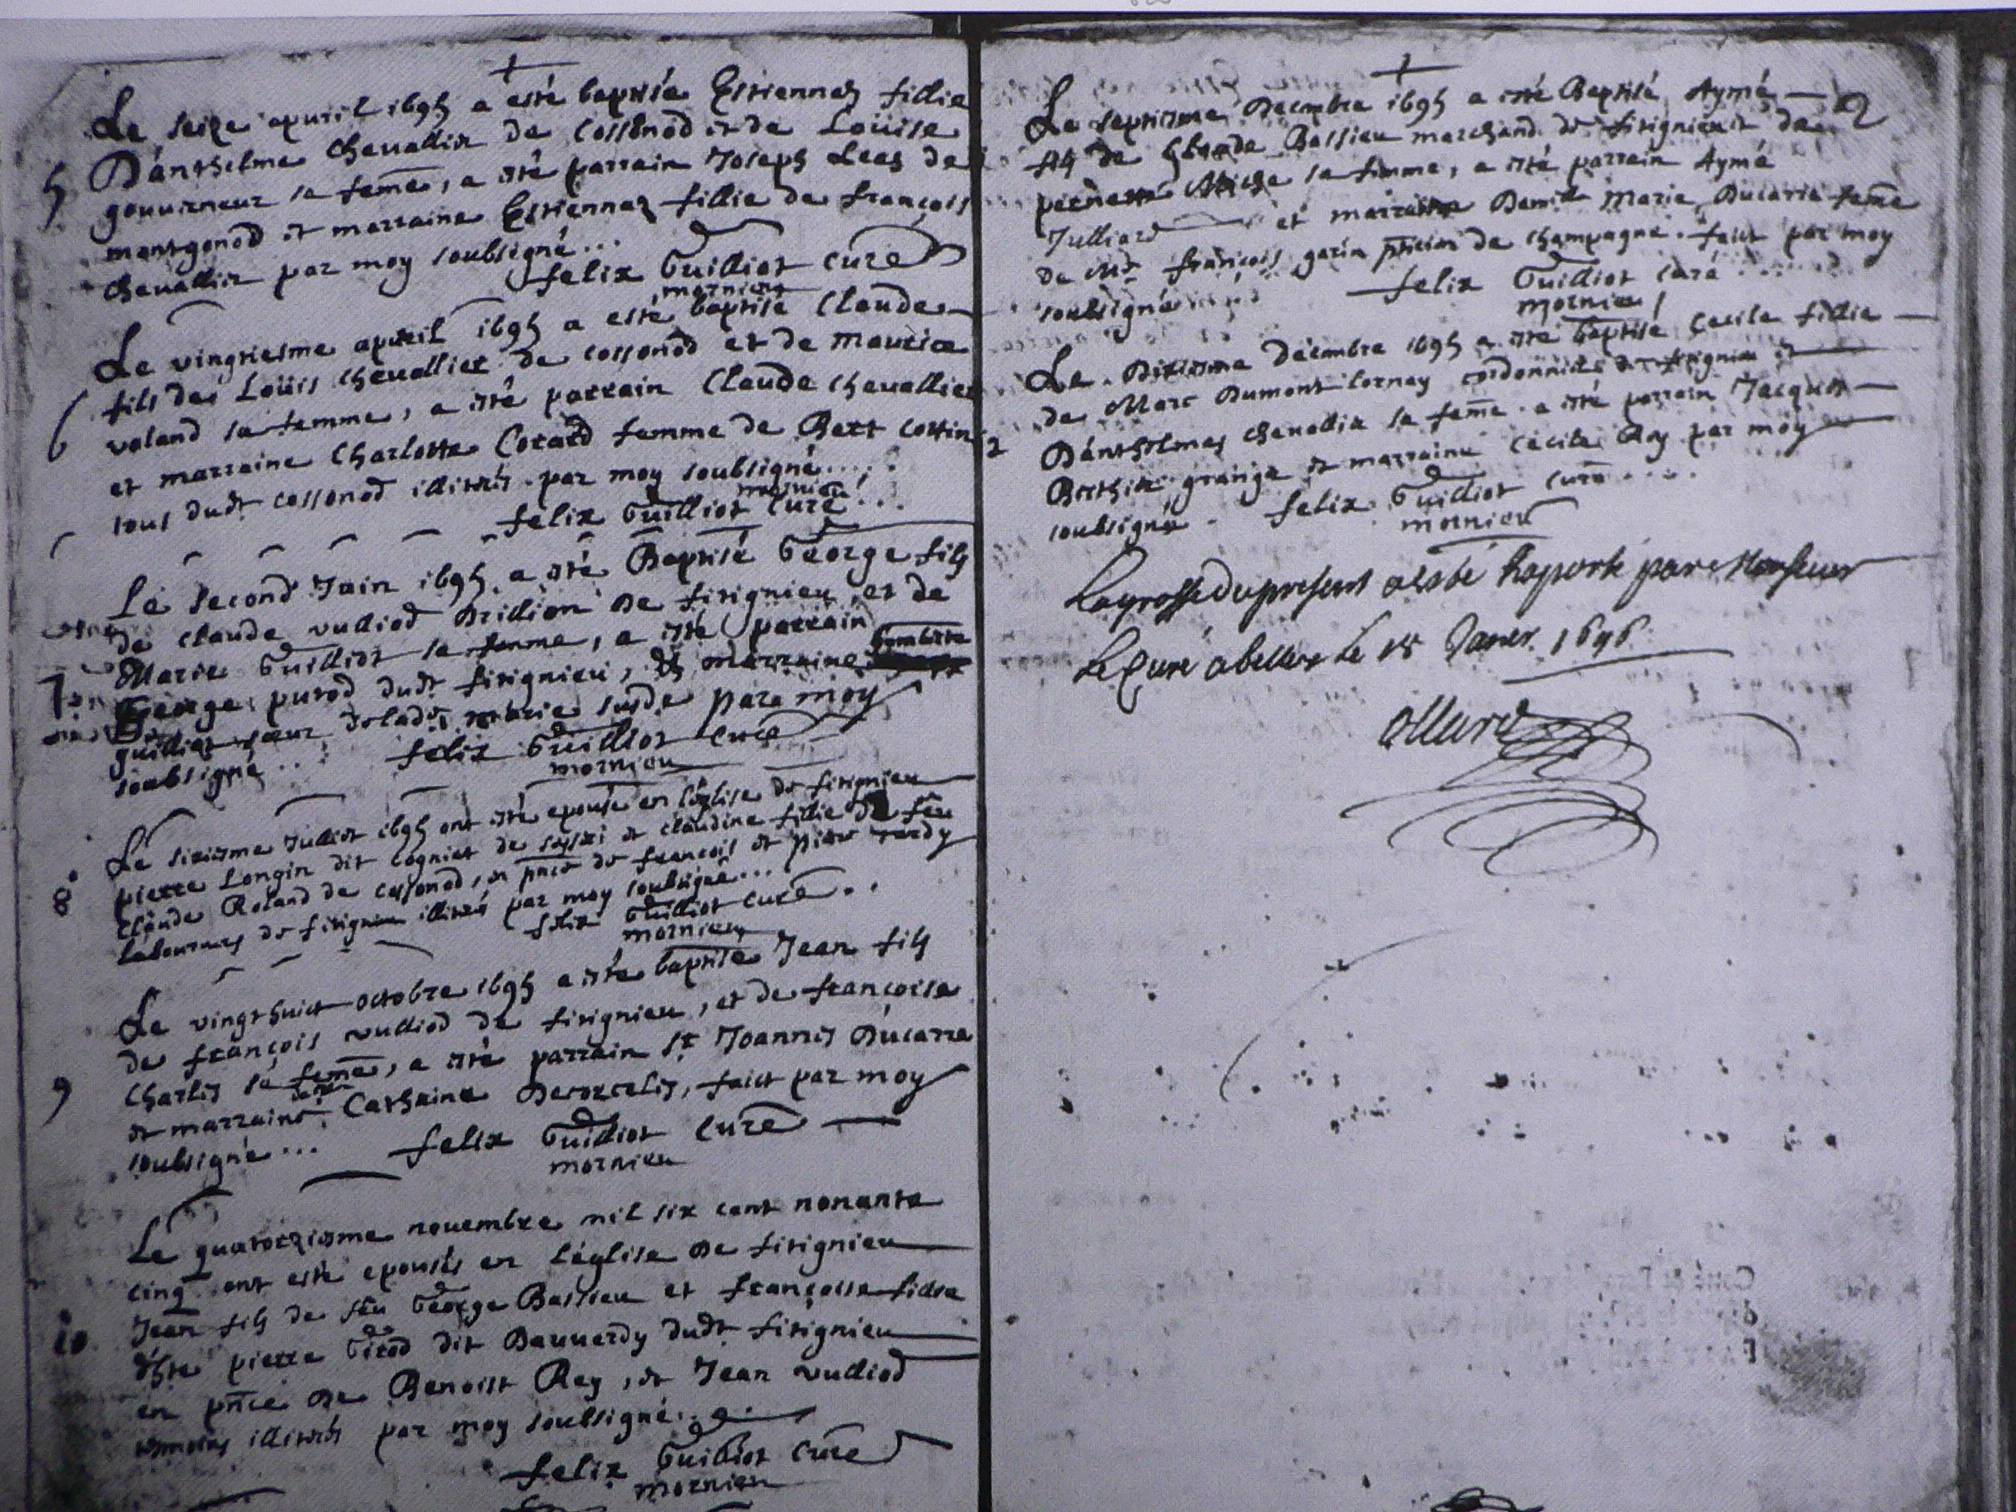 Le seize apuril 1695 a esté baptisée Estiennaz fillie
5 Danthelme Chevallier de Cossonod et de Loüise
gouuerneur sa feme, a esté parrain Joseph de
mantgonod et marraine Estiennaz fillie de françois
Cheuallier par moy soubsigné...
felix Guilliot curé
mornieu
Le vingtiesme apuril 1695 a esté baptisé Claude
fils de Loüis Cheuallier de cossonod et de maurice
6 voland sa femme, a esté parrain Claude Cheuallier
et marraine Charlotte Cotard femme de Bert Cottin
tous dudt cossonod illitterés par moy soubsigné...
felix Guilliot curé...
mornieu
Le second Juin 1695 a esté Baptisé George fils
de Claude vulliod de sirignieu et de
Marie Guilliot sa femme, a esté parrain
7 George purod dudt sirignieu, et marraine
guilliot sœur marie susde par moy
soubsigné... felix Guilliot curé
mornieu
Le sixiesme Julliet 1695 ont esté epousé en l'églize de sirignieu
8 pierre Longin dit cogniet de et claudine fillie de feu
Claude Roland de cossonod, en pnce de françois et
laboureurs de sirignieu illiterés par moy soubsigné...
felix Guilliot curé..
mornieu
Le vingthuict octobre 1695 a esté baptisé Jean fils
de françois vulliod de sirignieu, et de françoise
9 Charlis sa feme, a esté parrain Sr Joannes Ducarre
et marraine Catherine, faict par moy
soubsigné... felix Guilliot curé
mornieu
Le quatorziesme nouembre mil six cent nonante
cinq ont esté epousés en l'église de sirignieu
Jean fils de feu George Bassieu et françoise fillie
10 pierre Girod dit Bauuerdy dudt sirignieu
en pnce de Benoist Rey, et Jean vulliod
temoins illiterés par moy soubsigné..
felix Guilliot curé
mornieu
2
Le septiesme Decembre 1695 a esté Baptisé Aymé
fils de Claude Bassieu marchand de sirignieu et de
pernette sa femme, a esté parrain Aymé
Julliard et marraine Marie Ducarre feme
de françois garin de champagne. faict par moy
soubsigné felix Guilliot curé
mornieu
Le Dixiesme Decembre 1695 a esté baptisé Cecile fillie
de Marc Dumont cordonnier de sirignieu et
2 Danthelmaz Cheuallier sa feme. a esté parrain Jacques
Berthier grange et marraine Cecile Roy par moy
soubsigné. felix Guilliot curé...
mornieu
La grosse du present a esté Raporté par Monsieur
Le Curé a belley Le 18 Janer. 1696